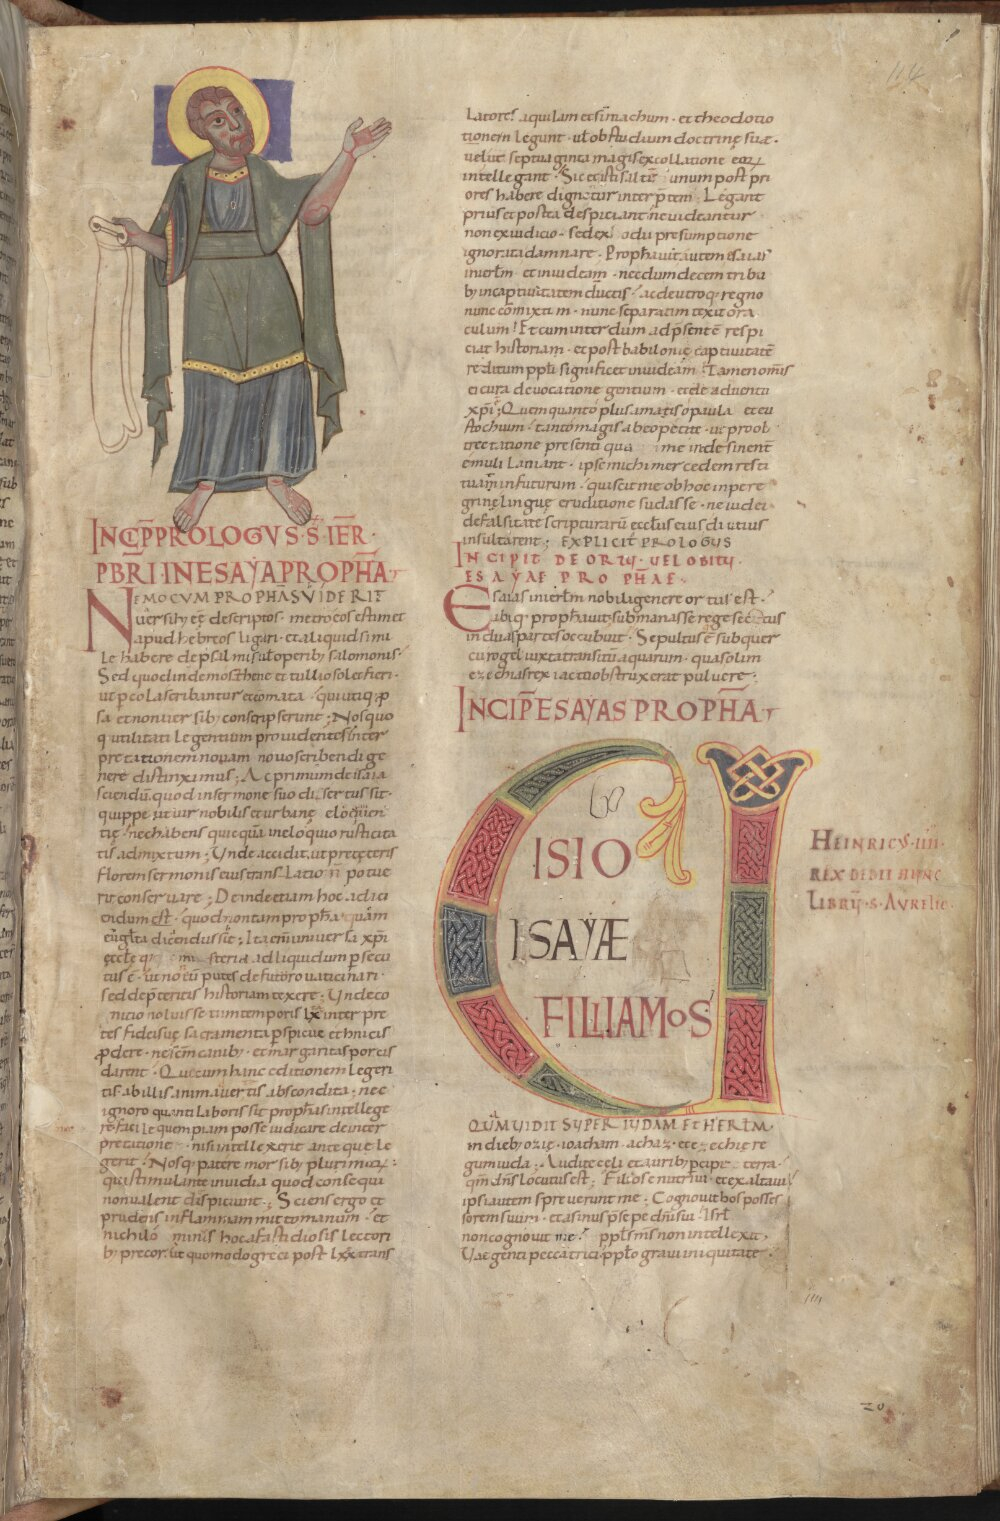 INCIP̄ PROLOGVS · S̄ IER̄ ·
PB̄RI IN ESAYA PROPH̄A
NEMO CVM PROPH̄AS VIDERIT
uersib; eē descriptos · metro eos estimet
apud hebreos ligari · et aliquid simi
le habere de psalmis ul̄ operib; salomonis ·
Sed quod in demosthene et tullio solet fieri ·
ut p cola scribantur et comata · qui utiq; p
sa et non uersib; conscripserunt ; Nos quo
q; utilitati legentium prouidentes inter
pretationem nouam nouo scribendi ge
nere distinximus ; Ac primum de isaia
sciendū quod in sermone suo disertus sit ·
quippe ut uir nobilis et urbanę eloquen
tię · nec habens quicquā in eloquio rusticita
tis admixtum ; Unde accidit ut pre ceteris
florem sermonis eius translatio n̄ potue
rit conseruare ; Deinde etiam hoc adici
endum est · quod non tam proph̄a quam
eugl̄ta dicendus sit ; Ita enī uniuersa xp̄i
ęcclę mysteria ad liquidum psecu
tus ē · ut non eū putes de futuro uaticinari ·
sed de p̄teritis historiam texere ; Unde co
nicio noluisse tum temporis lxx inter pre
tes fidei suę sacramenta pspicue ethnicis
pdere · ne sc̄m canib; · et margaritas porcis
darent · Quę cum hanc editionem legeri
tis ab illis animauertis abscondita ; nec
ignoro quanti laboris sit proph̄as intellege
re facile quempiam posse iudicare de inter
pretatione · nisi intellexerit ante que le
gerit · Nosq; patere morsib; plurimorum ·
qui stimulante inuidia quod consequi
non ualent dispiciunt ; Sciens ergo et
prudens in flammam mitto manum · et
nichilominus hoc a fastidiosis lectori
b; precor · ut quomodo greci post lxx trans
latores aquilam et simachum · et theodotio
tionem legunt · ul̄ ob studium doctrinę suę ·
uel ut septuaginta magis ex collatione eorum
intellegant · Sic et isti saltē unum post pri
ores habere dignentur interp̄tem ; Legant
prius et postea despiciant · ne uideantur
non ex iudicio · sed ex odii presumptione
ignorata damnare · Prophauit autem esaias
in ierl̄m · et in iudeam · necdum decem tribu
b; in captiuitatem ductis ; ac de utroq; regno
nunc cōmixtim · nunc separatim texit ora
culum ! Et cum interdum ad p̄sentē respi
ciat historiam · et post babilonię captiuitatē
reditum ppl̄i significet in iudeam ; Tamen om̄is
ei cura de uocatione gentium · et de aduentu
xp̄i ; Quem quanto plus amatis o paula et eu
stochium · tanto magis ab eo petite · ut pro ob
trectatione presenti qua me indesinent̄
emuli laniant · ipse michi mercedem resti
tuat in futurum · qui scit me ob hoc in pere
grinę linguę eruditione sudasse · ne iudei
de falsitate scripturarū eccl̄iis eius diutius
insultarent ; EXPLICIT PROLOGVS
INCIPIT DE ORTV · VEL OBITV ·
ESAYAE PROPHAE ·
Esaias in ierl̄m nobili genere ortus est ·
ibiq; proph̄auit · sub manasse rege sectus
in duas partes occubuit · Sepultus ē sub quer
cu rogel iuxta transitū aquarum · quas olim
ezechias rex iacto obstruxerat puluere ·
INCIP̄ ESAYAS PROPH̄A
VISIO
ISAYÆ
FILII AMOS
QUĀ VIDIT SVPER IVDAM ET HIERLM̄ ·
in dieb; ozię · ioatham · achaz · et ezechię re
gum iuda ; Audite celi et aurib; pcipe terra ·
qm̄ dn̄s locutus est ; Filios enutriui · et exaltaui
ipsi autem spreuerunt me ; Cognouit bos posses
sorem suum · et asinus p̄sepe dn̄i sui · Isrl̄
non cognouit me · ppl̄s m̄s non intellexit ·
Uae genti peccatrici · ppl̄o graui iniquitate
HEINRICVS · IIII ·
REX DEDIT HVNC
LIBRV̄ · S · AVRELIO ·
20